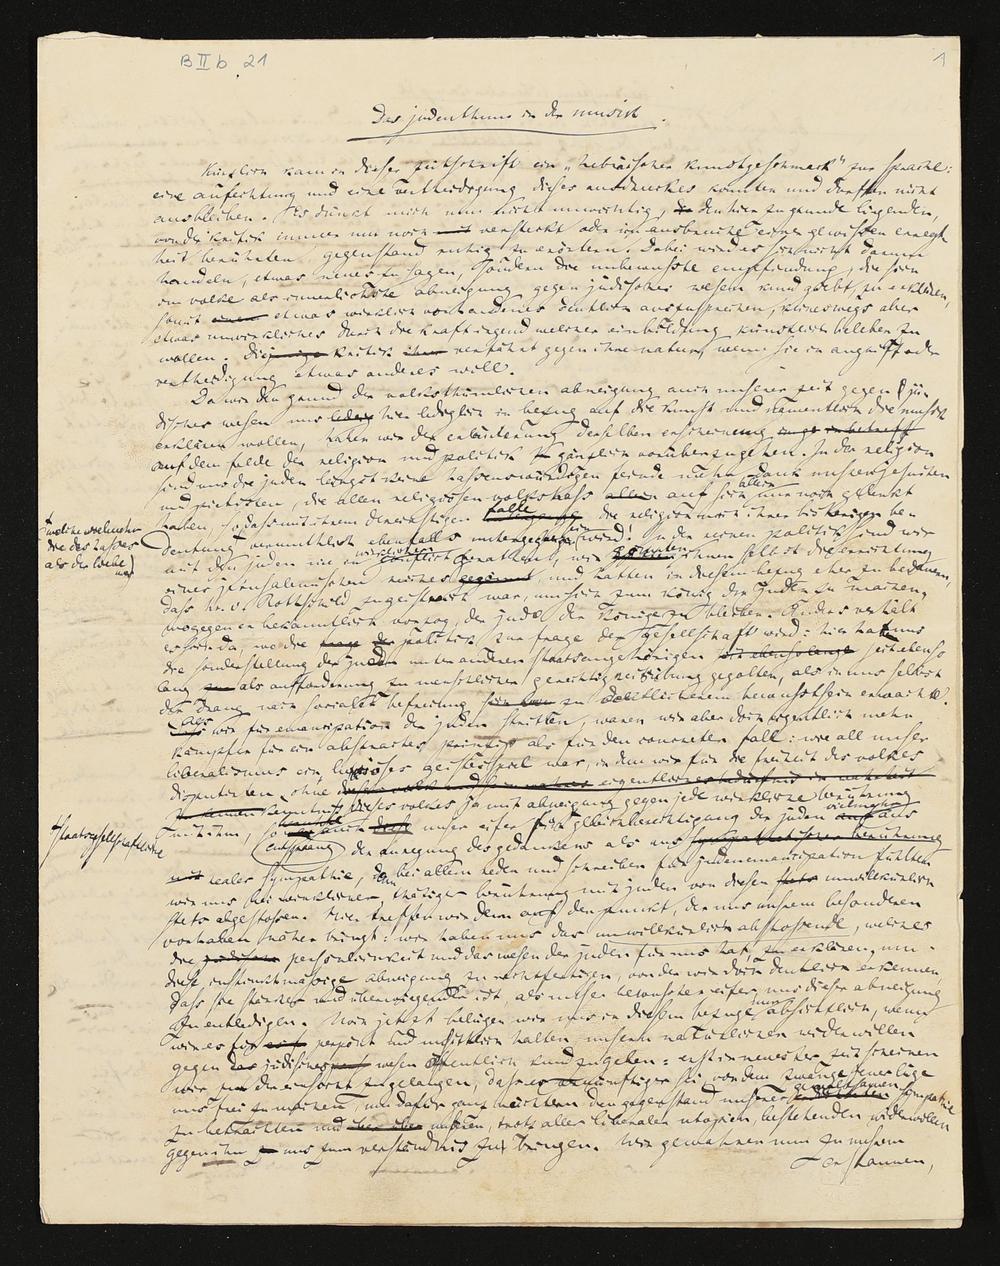 B II b 21
1
Das judenthum in der musik.
Kürzlich kam in dieser zeitschrift ein „hebräischer kunstgeschmack" zur sprache:
eine anfechtung und eine vertheidigung dieses ausdruckes konnten und durften nicht
ausbleiben. Es dünkt mich nun nicht unwichtig, den hier zu grunde liegenden,
von der kritik immer nur noch versteckt oder im ausbruche einer gewissen erregt
heit berührten gegenstand ruhig zu erörtern. Dabei wird es sich nicht darum
handeln, etwas neues zu sagen, sondern die unbewußte empfindung, die sich
im volke als innerlichste abneigung gegen jüdisches wesen kundgiebt, zu erklären,
somit etwas wirklich vorhandenes deutlich auszusprechen, keineswegs aber
etwas unwirkliches durch die kraft irgend welcher einbildung künstlich beleben zu
wollen. Die kritik verfährt gegen ihre natur, wenn sie in angriff oder
vertheidigung etwas anderes will.
Da wir den grund der volksthümlichen abneigung auch unserer zeit gegen jü-
disches wesen uns hier lediglich in bezug auf die kunst und namentlich die musik
erklären wollen, haben wir der erläuterung derselben erscheinung
auf dem felde der religion und politik gänzlich vorüberzugehen. In der religion
sind uns die juden längst keine hassenswürdigen feinde mehr, dank unsern jesuiten
und pietisten, die allen religiösen volkshass allein auf sich nur noch gelenkt
haben, so dass mit ihrem dereinstigen falle die religion nach ihrer bisherigen be
deutung vermuthlich ebenfalls untergegangen sein wird! In der reinen politik sind wir
mit den juden nie in wirklichen conflict gerathen, wir gönnten ihnen selbst die errichtung
eines jerusalemischen reiches, und hatten in diesem bezug eher zu bedauern,
dass hr. v. Rothschild zu geistreich war, um sich zum könig der juden zu machen,
wogegen er bekanntlich vorzog, der jude der könige zu bleiben. Anders verhält
es sich da, wo die politik zur frage der gesellschaft wird: hier hat uns
die sonderstellung der juden unter anderen staatsangehörigen seit ebenso
lang als aufforderung zu menschlicher gerechtigkeitsübung gegolten, als in uns selbst
der drang nach socialer befreiung zu deutlicherem bewusstsein erwachte.
Als wir für emancipation der juden stritten, waren wir aber doch eigentlich mehr
kämpfer für ein abstractes princip als für den concreten fall: wie all unser
liberalismus ein luxuriöses geistesspiel war, in dem wir für die freiheit des volkes
disputirten, ohne
kenntniß dieses volkes, ja mit abneigung gegen jede wirkliche berührung
mit ihm, so unser eifer für gleichberechtigung der juden vielmehr aus
entsprang der anregung des gedankens als aus
realer sympathie, denn bei allem reden und schreiben für judenemancipation fühlten
wir uns bei wirklicher, thätiger berührung mit juden von diesen unwillkürlich
stets abgestossen. Hier treffen wir denn auf den punkt, der uns unserem besonderen
vorhaben näher bringt: wir haben uns das unwillkürlich abstossende, welches
die persönlichkeit und das wesen der juden für uns hat, zu erklären, um
diese instinktmässige abneigung zu rechtfertigen, von der wir doch deutlich erkennen
dass sie stärker und überwiegender ist, als unser bewusster eifer, uns dieser abneigung
zu entledigen. Noch jetzt belügen wir uns in diesem bezuge nur absichtlich, wenn
wir es für verpönt und unsittlich halten, unsern natürlichen widerwillen
gegen das jüdische wesen öffentlich kund zu geben: erst in neuester zeit scheinen
wir zu der einsicht zu gelangen, dass es vernünftiger sei von dem zwange jener lüge
uns frei zu machen, um dafür ganz nüchtern den gegenstand unserer gewaltsamen sympathie
zu betrachten und unseren, trotz aller liberalen utopien, bestehenden widerwillen
gegen ihn uns zum verständniss zu bringen. Wir gewahren nun zu unserem
Erstaunen,